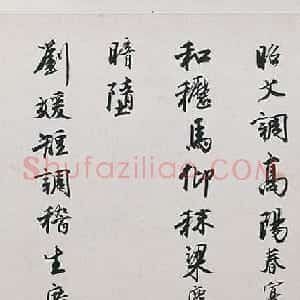 昭文調高陽春寡
和櫪馬仰秣梁塵
暗墮
劉媛調稽生廣
Shufaziliao.com